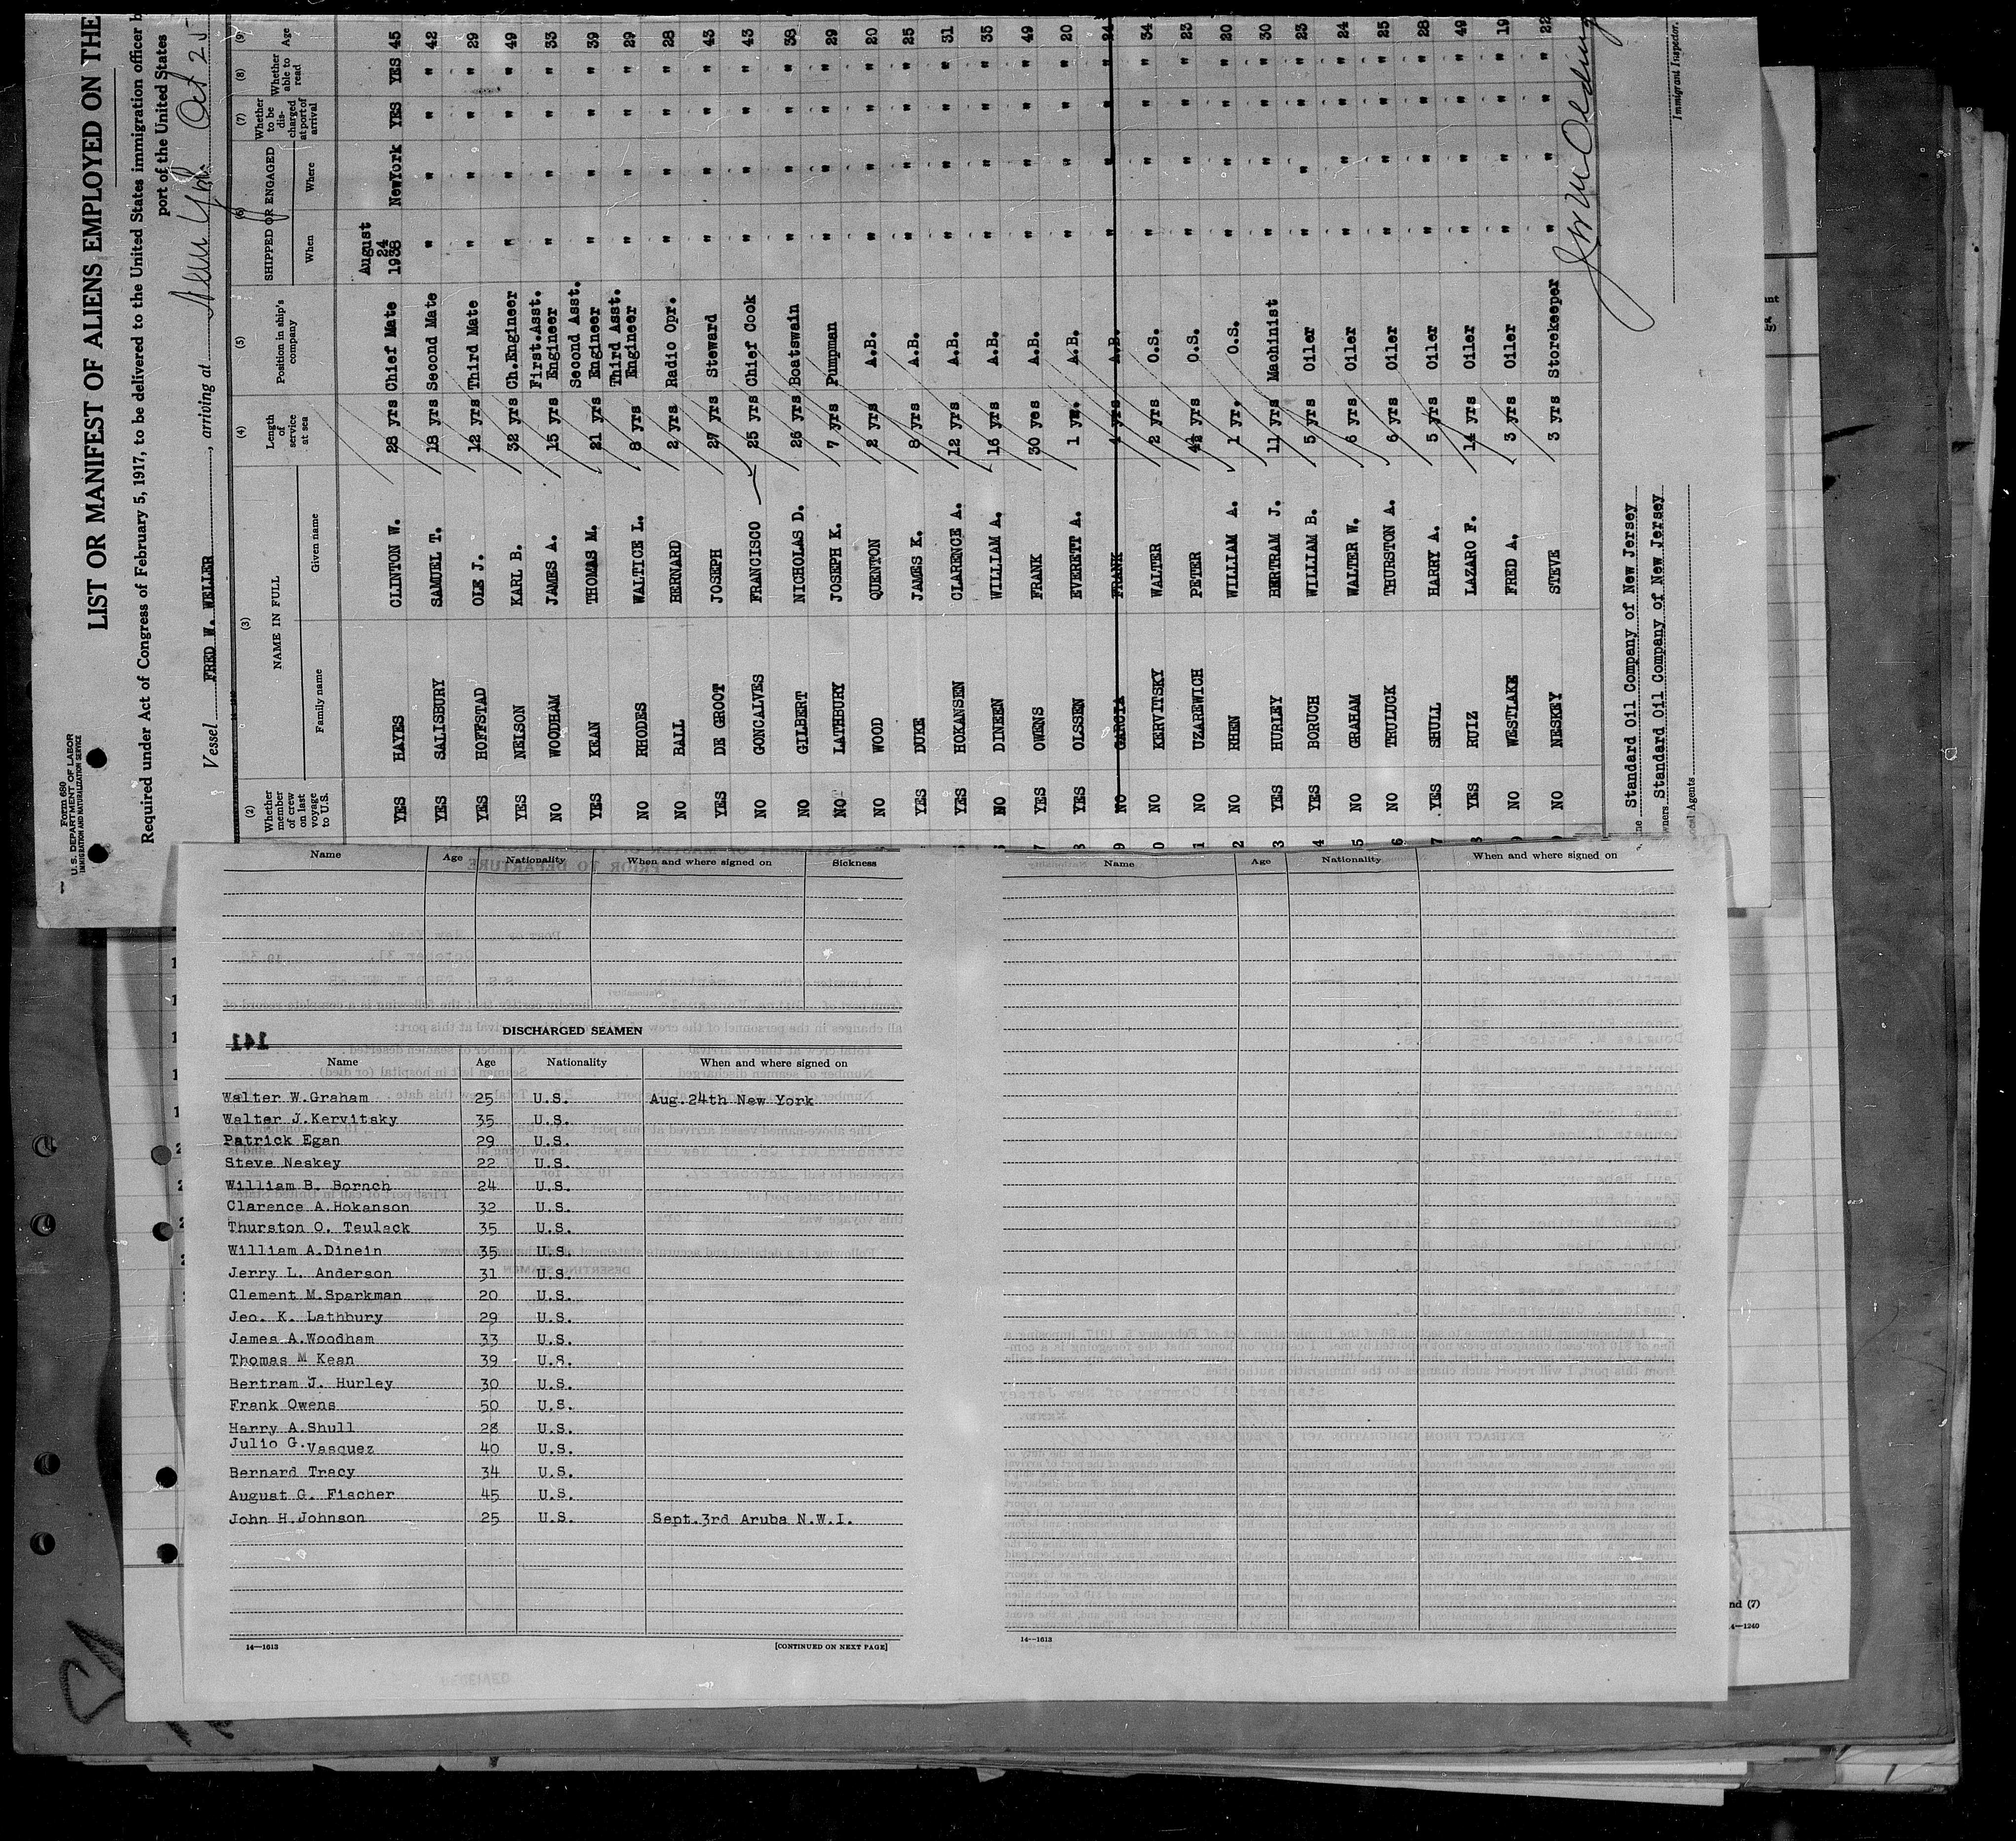 Form 680
U. S. DEPARTMENT OF LABOR
IMMIGRATION AND NATURALIZATION SERVICE
LIST OR MANIFEST OF ALIENS EMPLOYED ON THE
Required under Act of Congress of February 5, 1917, to be delivered to the United States immigration officer b
port of the United States
Vessel FRED W. WELLER, arriving at New York Oct 25
(2) (3) (4) (5) (6) (7) (8) (9)
Whether member of crew on last voyage to U.S. NAME IN FULL Family name Given name Length of service at sea Position in ship's company SHIPPED OR ENGAGED When Where Whether to be discharged at port of arrival Whether able to read Age
YES HAYES CLINTON W. 28 yrs Chief Mate August 24 1938 NewYork YES YES 45
YES SALISBURY SAMUEL T. 18 yrs Second Mate " " " " 42
YES HOFFSTAD OLE J. 12 yrs Third Mate " " " " 29
YES NELSON KARL B. 32 yrs Ch.Engineer " " " " 49
NO WOODHAM JAMES A. 15 yrs First.Asst. Engineer " " " " 33
YES KEAN THOMAS M. 21 yrs Second Asst. Engineer " " " " 39
NO RHODES WALTICE L. 8 yrs Third Asst. Engineer " " " " 29
NO BALL BERNARD 2 yrs Radio Opr. " " " " 28
YES DE GROOT JOSEPH 27 yrs Steward " " " " 43
NO GONCALVES FRANCISCO 25 yrs Chief Cook " " " " 43
NO GILBERT NICHOLAS D. 26 yrs Boatswain " " " " 38
NO LATHBURY JOSEPH K. 7 yrs Pumpman " " " " 29
NO WOOD QUENTON 2 yrs A.B. " " " " 20
YES DUKE JAMES K. 8 yrs A.B. " " " " 25
YES HOKANSEN CLARENCE A. 12 yrs A.B. " " " " 31
NO DINEEN WILLIAM A. 16 yrs A.B. " " " " 35
YES OWENS FRANK 30 yes A.B. " " " " 49
YES OLSSEN EVERETT A. 1 yr. A.B. " " " " 20
NO GARCIA FRANK 4 yrs A.B. " " " " 24
NO KERVITSKY WALTER 2 yrs O.S. " " " " 34
NO UZAREWICH PETER 4½ yrs O.S. " " " " 23
NO RHEN WILLIAM A. 1 yr. O.S. " " " " 20
YES HURLEY BERTRAM J. 11 yrs Machinist " " " " 30
YES BORUCH WILLIAM B. 5 yrs Oiler " " " " 23
NO GRAHAM WALTER W. 6 yrs Oiler " " " " 24
NO TRULUCK THURSTON A. 6 yrs Oiler " " " " 25
YES SHULL HARRY A. 5 yrs Oiler " " " " 28
YES RUIZ LAZARO F. 14 yrs Oiler " " " " 49
NO WESTLAKE FRED A. 3 yrs Oiler " " " " 19
NO NESKEY STEVE 3 yrs Storekeeper " " " " 22
Standard Oil Company of New Jersey
wners Standard Oil Company of New Jersey
Local Agents
Immigrant Inspector.
Name Age Nationality When and where signed on Sickness
DISCHARGED SEAMEN
141
Name Age Nationality When and where signed on
Walter W.Graham 25 U.S. Aug.24th New York
Walter J.Kervitsky 35 U.S.
Patrick Egan 29 U.S.
Steve Neskey 22 U.S.
William B. Bornch 24 U.S.
Clarence A.Hokanson 32 U.S.
Thurston O. Teulack 35 U.S.
William A.Dinein 35 U.S.
Jerry L. Anderson 31 U.S.
Clement M.Sparkman 20 U.S.
Jeo. K. Lathbury 29 U.S.
James A.Woodham 33 U.S.
Thomas M Kean 39 U.S.
Bertram J. Hurley 30 U.S.
Frank Owens 50 U.S.
Harry A.Shull 28 U.S.
Julio G. Vasquez 40 U.S.
Bernard Tracy 34 U.S.
August G. Fischer 45 U.S.
John H.Johnson 25 U.S. Sept.3rd Aruba N.W.I.
14—1613 [CONTINUED ON NEXT PAGE]
Name Age Nationality When and where signed on
14—1613
nd (7)
4—1240